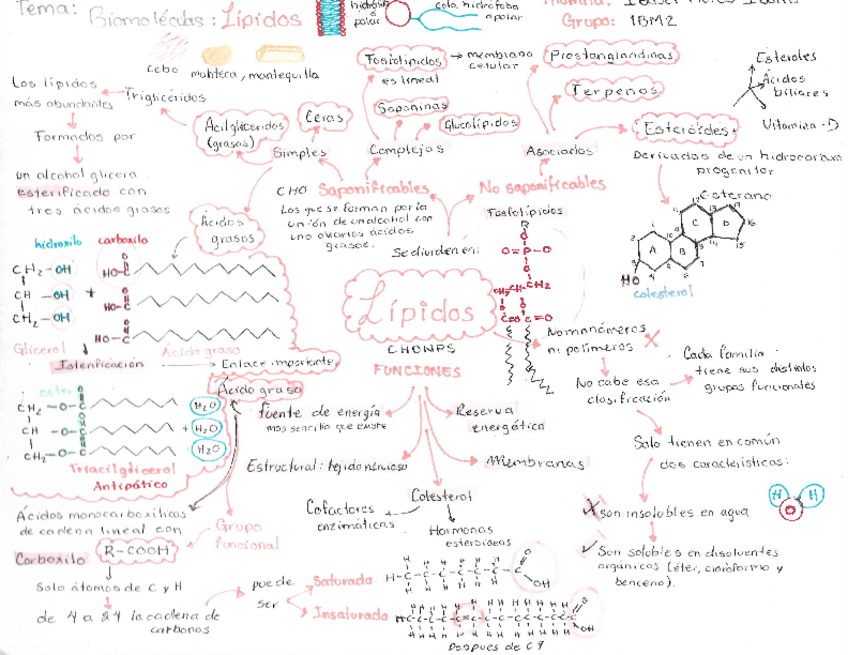 Tema:
Biomoléculas: Lípidos
polar
cola hidrófoba
apolar
Grupo: 1BM2
cebo manteca, mantequilla
Los lípidos
más abundantes
Triglicéridos
Formados por
un alcohol glicera
esterificado con
tres ácidos grasos
Acilglicéridos
(grasas)
Ceras
Simples
Fosfolípidos
es lineal
membrana
celular
Saponinas
Glucolípidos
Complejos
Prostanglandinas
Terpenos
Asociados
Esteroides
Esteroles
Ácidos
biliares
Vitamina-D
Derivados de un hidrocarburo
progenitor
CHO Saponificables
Los que se forman por la
unión de un alcohol con
uno o varios ácidos
grasos.
No saponificables
Se dividen en:
Fosfolípidos
R
O
O=P-O
O
CH2-CH-CH2
O O
C=O C=O
Esterano
1 2 3 4 5 6 7 8 9 10 11 12 13 14 15 16
A B C D
HO
colesterol
Ácidos
grasos
hidroxilo carboxilo
CH2-OH
CH-OH
CH2-OH
+
HO-C
HO-C
HO-C
Glicerol
Ácido graso
Esterificación
Enlace importante
Lípidos
CHONPS
FUNCIONES
No monómeros
ni polímeros
No cabe esa
clasificación
Cada familia
tiene sus distintos
grupos funcionales
Solo tienen en común
dos características:
son insolubles en agua
H H
O
Son solubles en disolventes
orgánicos (éter, cloroformo y
benceno).
ester
CH2-O-C
CH-O-C
CH2-O-C
H2O
+ H2O
H2O
Triacilglicerol
Antipático
Ácido graso
Fuente de energía
mas sencillo que existe
Reserva
energética
Estructural: tejido nervioso
Membranas
Colesterol
Cofactores
enzimáticas
Hormonas
esteroideas
Ácidos monocarboxílicos
de cadena lineal con
Carboxilo
R-COOH
Grupo
funcional
Solo átomos de C y H
de 4 a 24 la cadena de
carbonos
puede
ser
Saturada
Insaturada
OH
OH
Después de C9